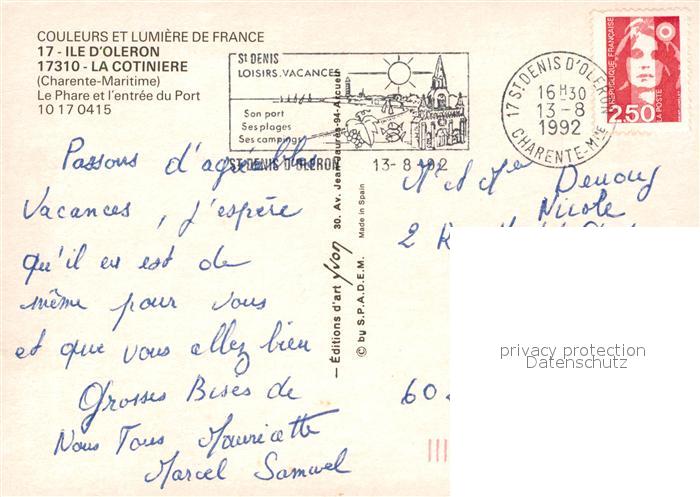 COULEURS ET LUMIÈRE DE FRANCE
17 - ILE D'OLERON
17310 - LA COTINIERE
(Charente-Maritime)
Le Phare et l'entrée du Port
10 17 0415
St DENIS
LOISIRS.VACANCES
Son port
Ses plages
Ses campings
ST DENIS D'OLERON 13-8 1992
17 St DENIS D'OLERON
16H30
13-8
1992
CHARENTE-Mme
REPUBLIQUE FRANÇAISE
2,50
LA POSTE
Passons d'agréables
Vacances, j'espère
qu'il en est de
même pour vous
et que vous allez bien
Grosses Bises de
Nous Tous Mauricette
Marcel Samuel
— Editions d'art yvon 30. Av. Jean-Jaurès-94-Arcueil
© by S.P.A.D.E.M. Made in Spain
M et Me
Nicole
2 R
60
privacy protection
Datenschutz